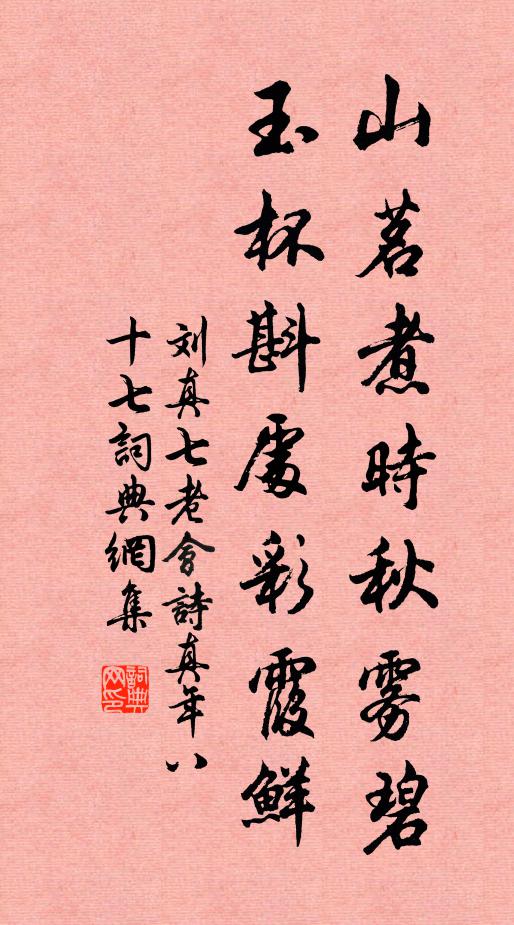 山茗煮時秋雾碧
玉杯斟處彩霞鮮
刘真七老會詩真年八
十七詞典網集
詞典網印